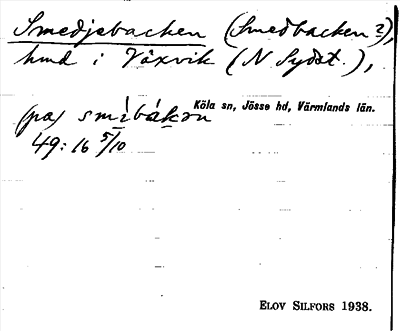 Smedjebacken (Smedbacken?),
hmd i Växvik (N Sydst.),
Köla sn, Jösse hd, Värmlands län.
(på)
49:16 5/10
ELOV SILFORS 1938.